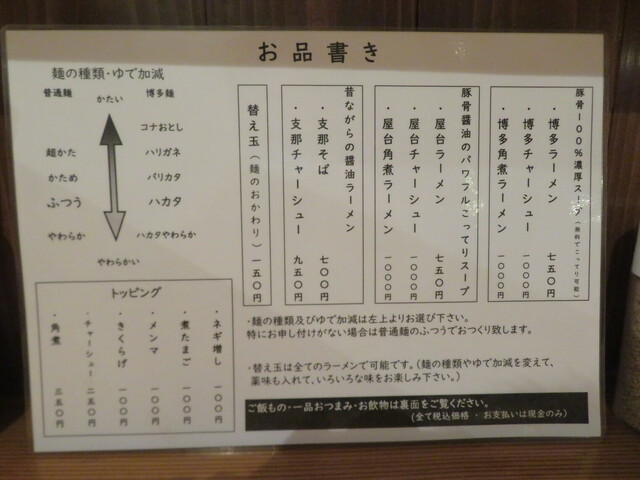 お品書き
豚骨100%濃厚スープ(無料でこってり可能)
・博多ラーメン 七五〇円
・博多チャーシュー 一〇〇〇円
・博多角煮ラーメン 一〇〇〇円
豚骨醤油のパワフルこってりスープ
・屋台ラーメン 七五〇円
・屋台チャーシュー 一〇〇〇円
・屋台角煮ラーメン 一〇〇〇円
昔ながらの醤油ラーメン
・支那そば 七〇〇円
・支那チャーシュー 九五〇円
替え玉(麺のおかわり) 一五〇円
麺の種類・ゆで加減
普通麺 かたい 博多麺
コナおとし
超かた ハリガネ
かため バリカタ
ふつう ハカタ
やわらか ハカタやわらか
やわらかい
トッピング
・ネギ増し 一〇〇円
・煮たまご 一〇〇円
・メンマ 一〇〇円
・きくらげ 一〇〇円
・チャーシュー 二五〇円
・角煮 三五〇円
・麺の種類及びゆで加減は左上よりお選び下さい。
特にお申し付けがない場合は普通麺のふつうでおつくり致します。
・替え玉は全てのラーメンで可能です。(麺の種類やゆで加減を変えて、
薬味も入れて、いろいろな味をお楽しみ下さい。)
ご飯もの・一品おつまみ・お飲物は裏面をご覧ください。
(全て税込価格 ・ お支払いは現金のみ)